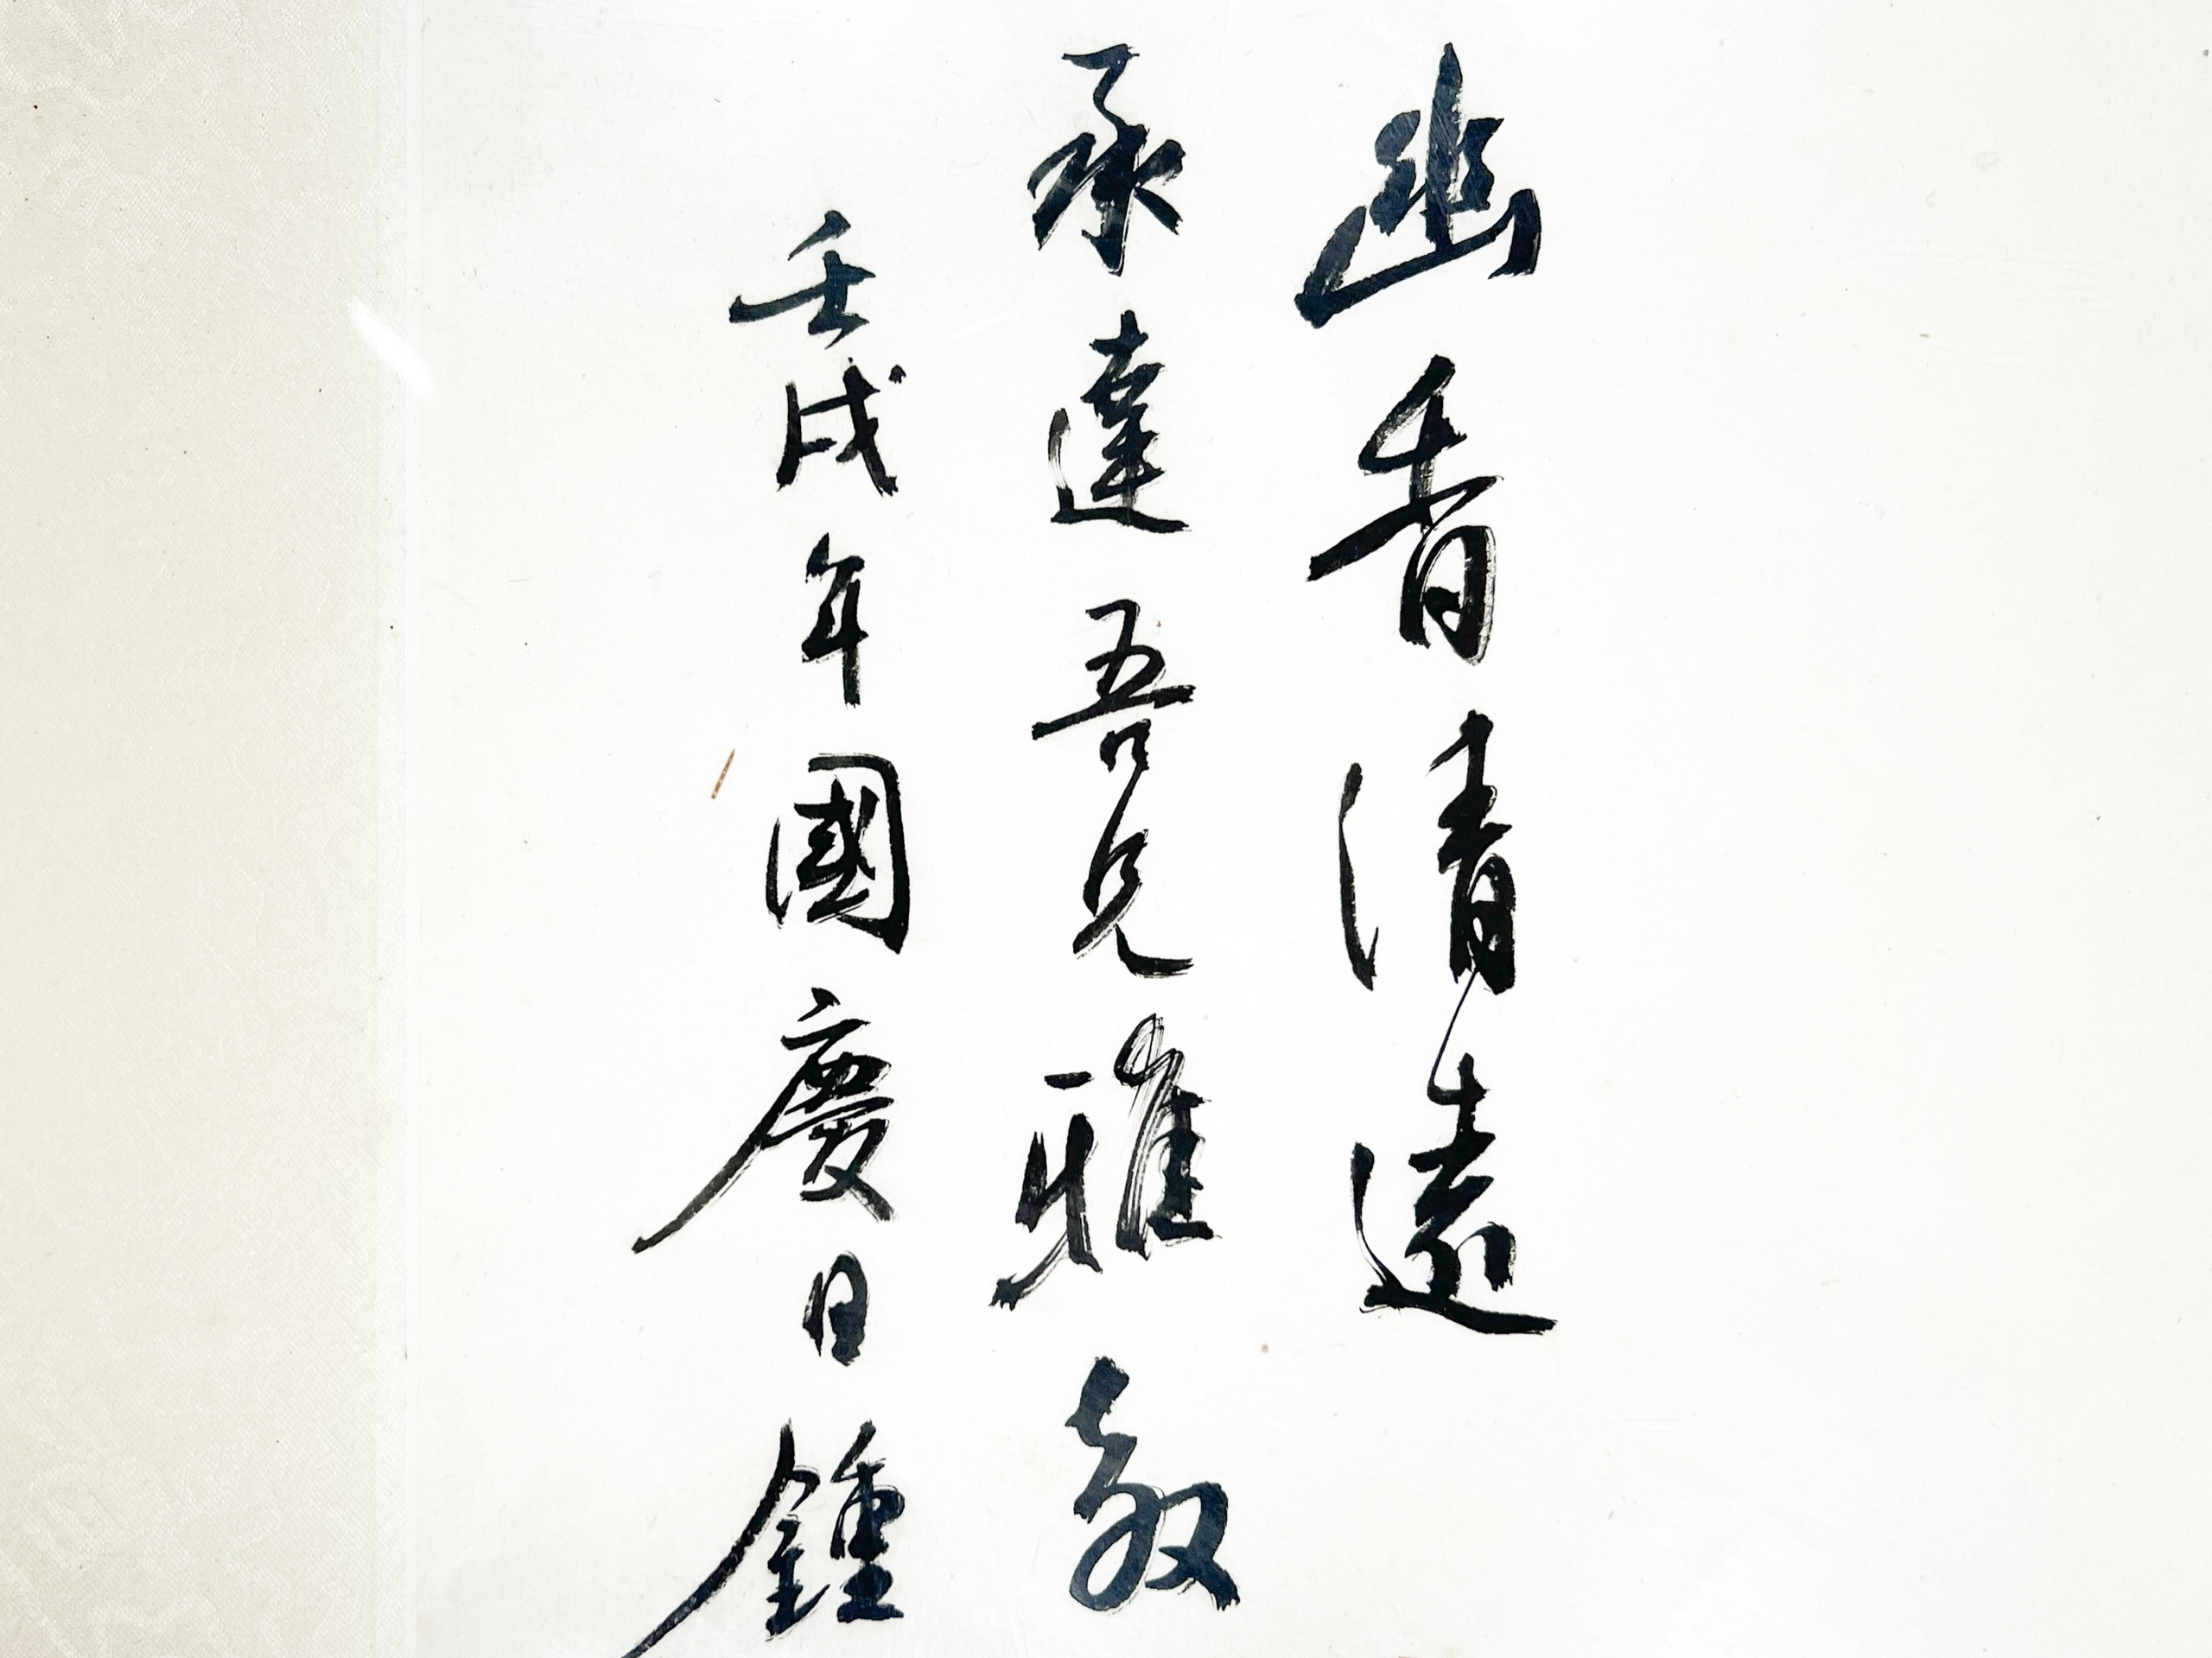 幽香清遠
承達吾兄雅教
壬戌年國慶日鍾